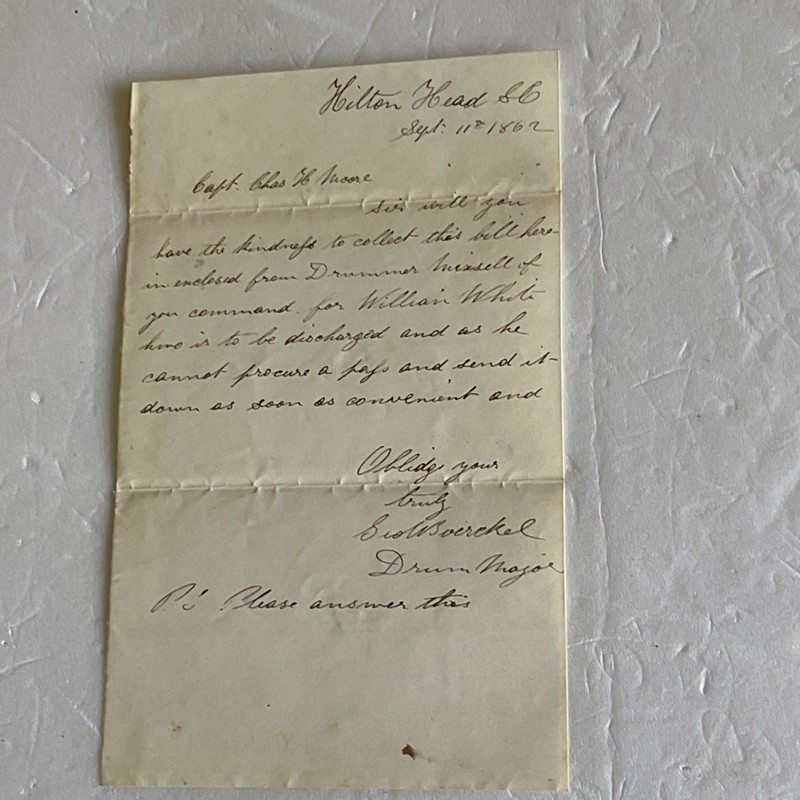 Hilton Head SC
Sept. 11th 1862
Capt. Chas H Moore
Sir will you
have the kindness to collect this bill here-
in enclosed from Drummer Minsell of
you command. for William White
hwo is to be discharged and as he
cannot procure a pass and send it
down as soon as convenient and
Oblidge your
truly
Geo W Boerckel
Drum Major
P.S Please answer this